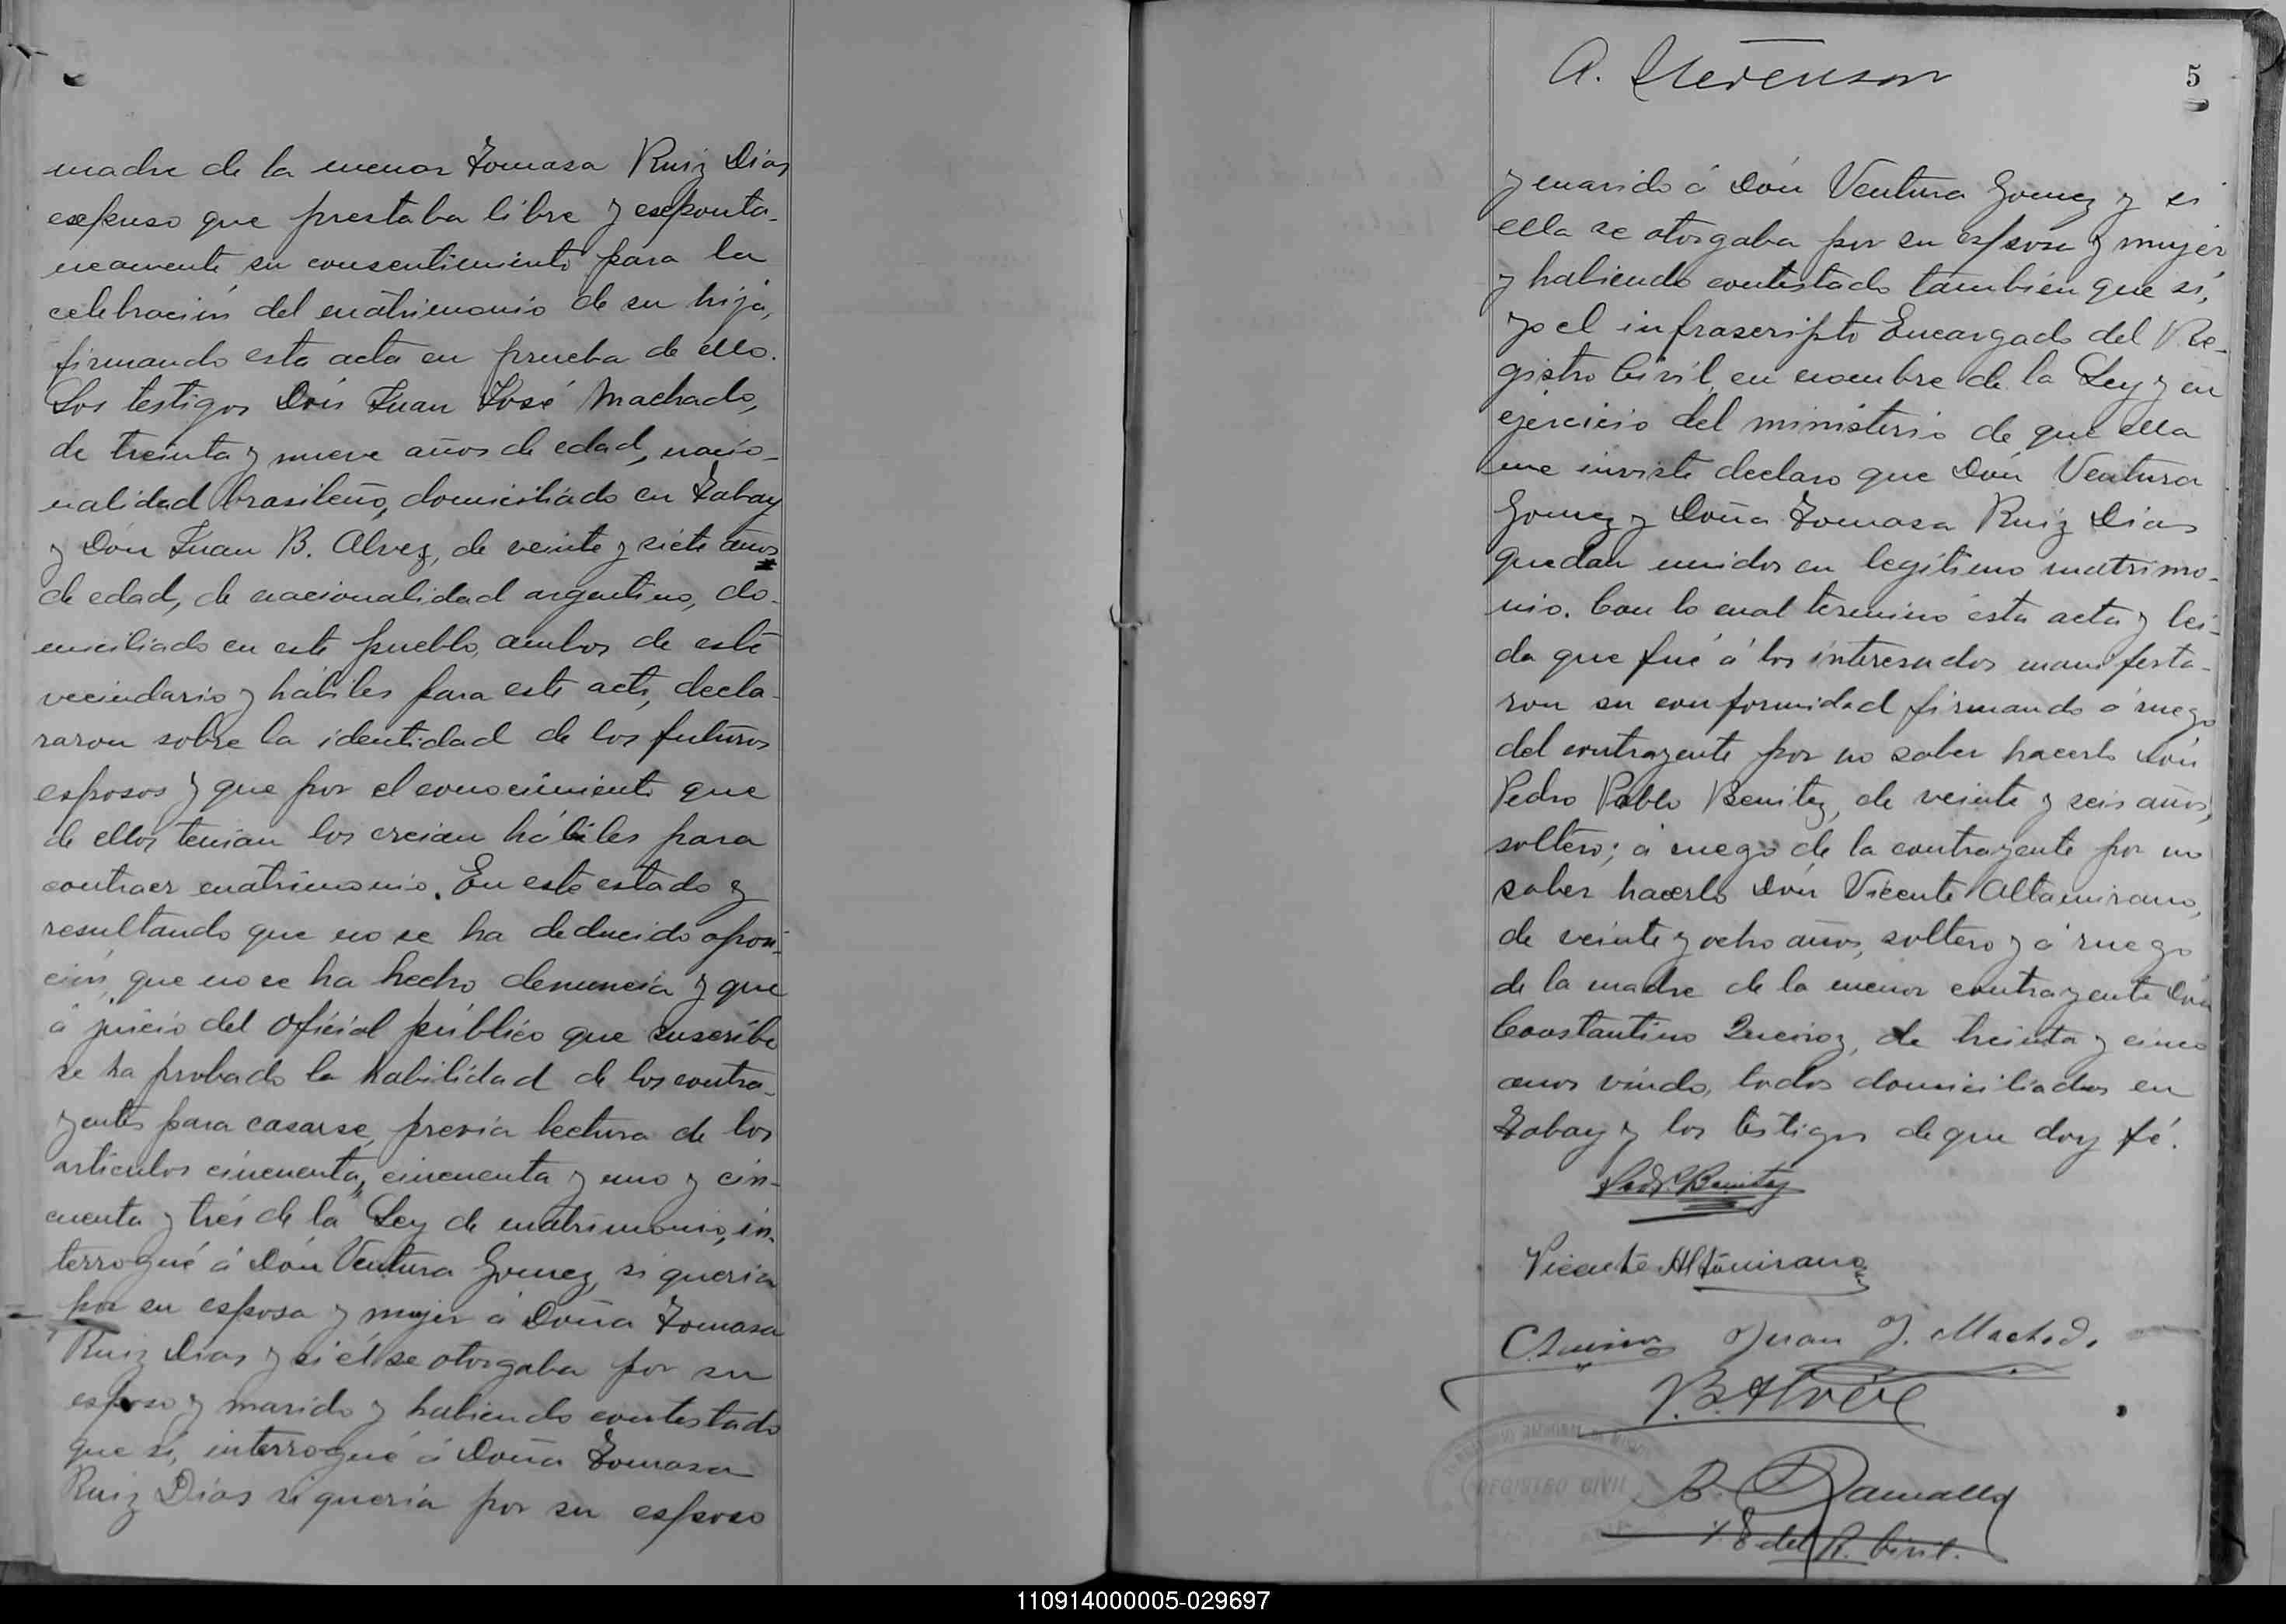 madre de la menor Tomasa Ruiz Dias
expuso que prestaba libre y esponta-
neamente su consentimiento para la
celebración del matrimonio de su hija,
firmando esta acta en prueba de ello.
Los testigos Dón Juan José Machado,
de treinta y nueve años de edad, nacio-
nalidad brasileño, domiciliado en Tabay
y Dón Juan B. Alvez, de veinte y siete años
de edad, de nacionalidad argentino, do-
miciliado en este pueblo, ambos de este
vecindario y hábiles para este acto, decla-
raron sobre la identidad de los futuros
esposos y que por el conocimiento que
de ellos tenian los creian hábiles para
contraer matrimonio. En este estado y
resultando que no se ha deducido oposi-
ción, que no se ha hecho denuncia y que
á juicio del oficial público que suscribe
se ha probado la habilidad de los contra-
yentes para casarse, previa lectura de los
artículos cincuenta, cincuenta y uno y cin-
cuenta y tres de la Ley de matrimonio, in-
terrogué á Dón Ventura Gomez, si queria
por su esposa y mujer á Doña Tomasa
Ruiz Dias y si él se otorgaba por su
esposo y marido y habiendo contestado
que sí, interrogué á Doña Tomasa
Ruiz Dias si queria por su esposo
A. Stevenson
5
y marido á Dón Ventura Gomez y si
ella se otorgaba por su esposa y mujer
y habiendo contestado también que sí,
yo el infrascripto Encargado del Re-
gistro Civil, en nombre de la Ley y en
ejercicio del ministerio de que ella
me inviste declaro que Dón Ventura
Gomez y Doña Tomasa Ruiz Dias
quedan unidos en legítimo matrimo-
nio. Con lo cual terminó esta acta y leí-
da que fué á los interesados manifesta-
ron su conformidad firmando á ruego
del contrayente por no saber hacerlo Dón
Pedro Pablo Benitez, de veinte y seis años,
soltero; á ruego de la contrayente por no
saber hacerlo Dón Vicente Altamirano,
de veinte y ocho años, soltero y á ruego
de la madre de la menor contrayente Dón
Constantino Queiroz, de treinta y cinco
anos viudo, todos domiciliados en
Tabay y los testigos de que doy fé.
Benitez
Vicente Altamirano
Juan J. Machado
B. Alvez
REGISTRO CIVIL
B.
del R. Civil.
110914000005-029697